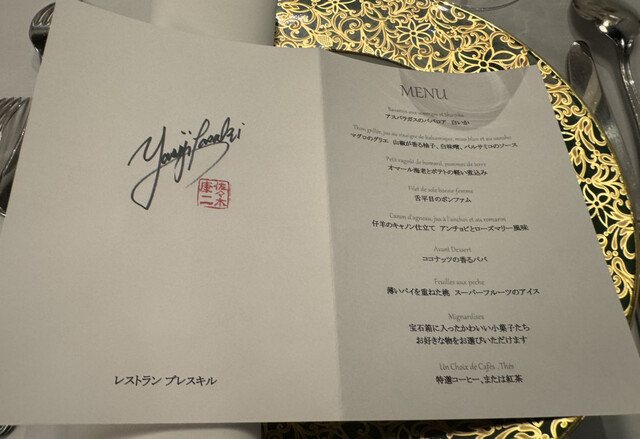 佐々木
康二
レストラン プレスキル
MENU
アスパラガスのババロア 白いか
マグロのグリエ 山椒が香る柚子、白味噌、バルサミコのソース
Petit ragoût de homard, pommes de terre
オマール海老とポテトの軽い煮込み
Filet de sole bonne-femme
舌平目のボンファム
Canon d'agneau, jus à l'anchois et au romarin
仔羊のキャノン仕立て アンチョビとローズマリー風味
Avant Dessert
ココナッツの香るババ
Feuilles aux pêche
薄いパイを重ねた桃 スーパーフルーツのアイス
Mignardises
宝石箱に入ったかわいい小菓子たち
お好きな物をお選びいただけます
Un Choix de Cafés , Thés
特選コーヒー、または紅茶